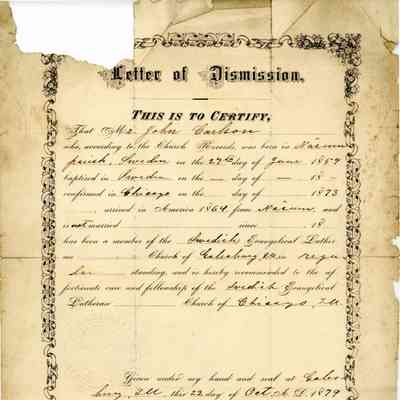 Letter of Dismission.
THIS IS TO CERTIFY,
That Mr. John Carlson
who, according to the Church Records, was born in Näsum
parish, Sweden in the 27th day of June 1857
baptized in Sweden in the — day of — 18 -
confirmed in Chicago in the — day of 1873
arrived in America 1864 from Näsum, and
is not married since 18
has been a member of the Swedish Evangelical Luther
an Church of Galesburg, Ill in regu
lar standing, and is hereby recommended to the af
fectionate care and fellowship of the Swedish Evangelical
Lutheran Church of Chicago, Ill.
Given under my hand and seal at Gales
burg, Ill. this 22 day of Oct. A. D. 1879